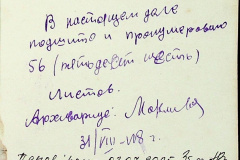 В настоящем деле
подшито и пронумеровано
56 (пятьдесят шесть)
листов.
Архивариус:
31/VIII-08 г.